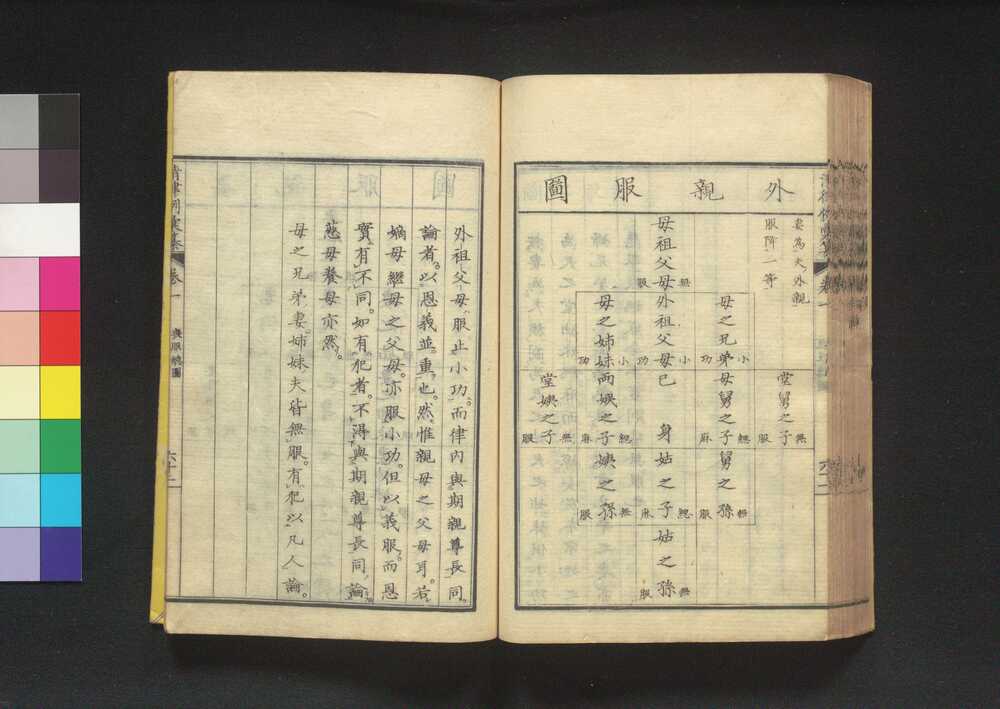 外親服圖
妻為夫外親
服降一等
堂舅之子
無服
母之兄弟
小功
母舅之子
緦麻
舅之孫
無服
母祖父母
無服
外祖父母
小功
己身
姑之子
緦麻
姑之孫
無服
母之姊妹
小功
兩姨之子
緦麻
姨之孫
無服
堂姨之子
無服
圖
外祖父母服止小功而律內與期親尊長同
論者以恩義並重也然惟親母之父母耳若
嫡母繼母之父母亦服小功但以義服而恩
實有不同如有犯者不得與期親尊長同論
慈母養母亦然
母之兄弟妻姊妹夫皆無服有犯以凡人論
卷一
喪服總圖